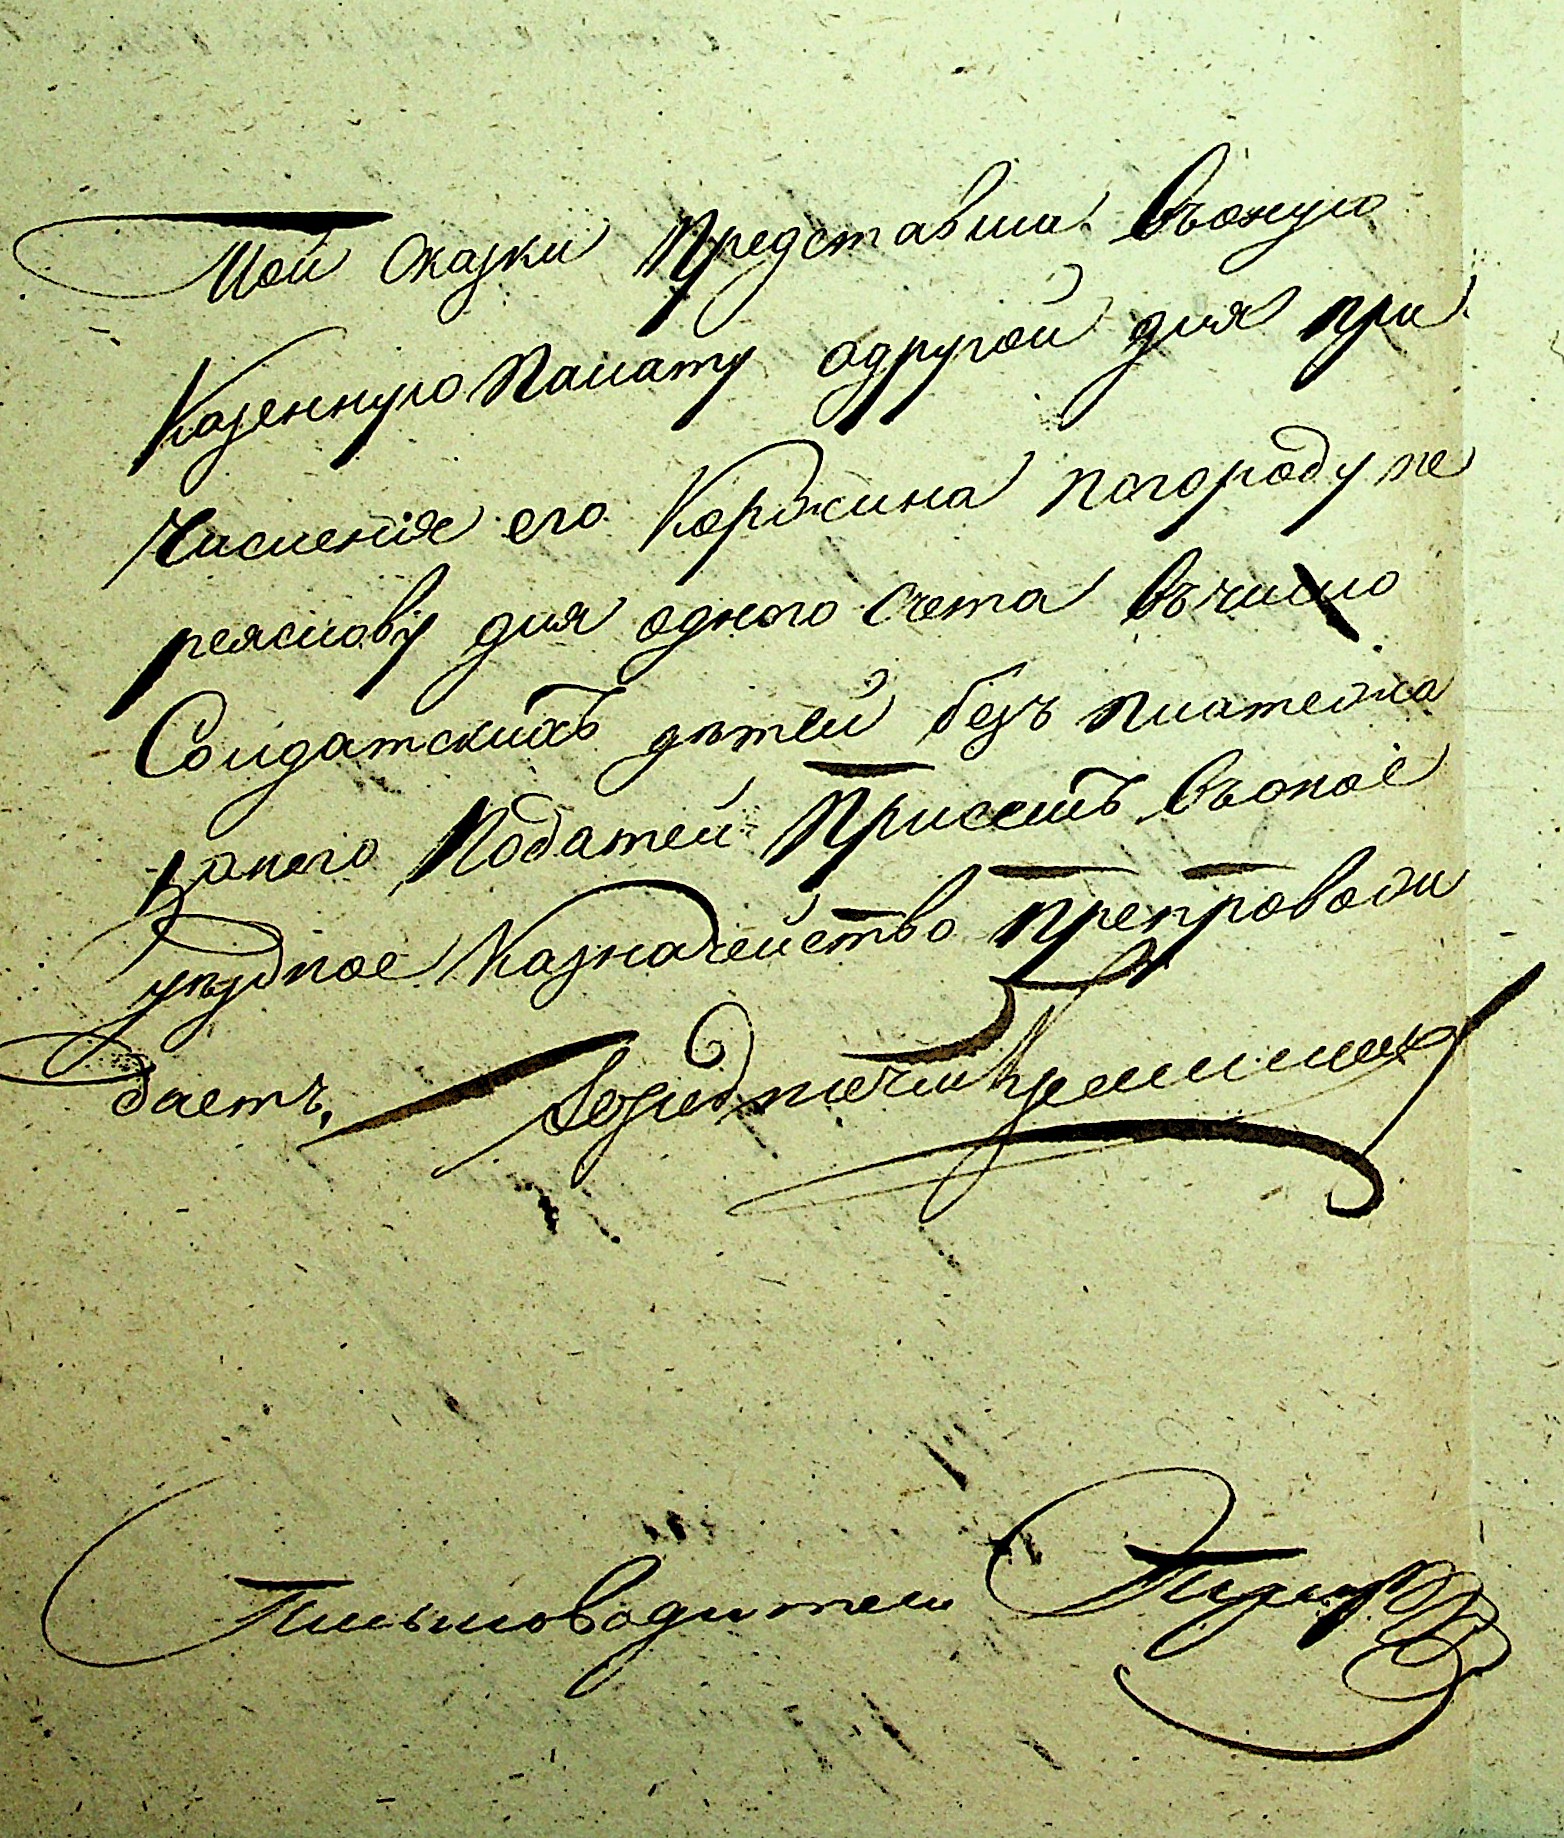 той сказки представила въоную
Казенную Палату адругой для при
численія его Коржина погороду пе
реяславу для одного счета въчисло
Солдатскихъ дѣтей безъ платежа
занего Податей Присемъ въоное
уѣздное Казначейство препровож
даетъ,
Письмоводитель